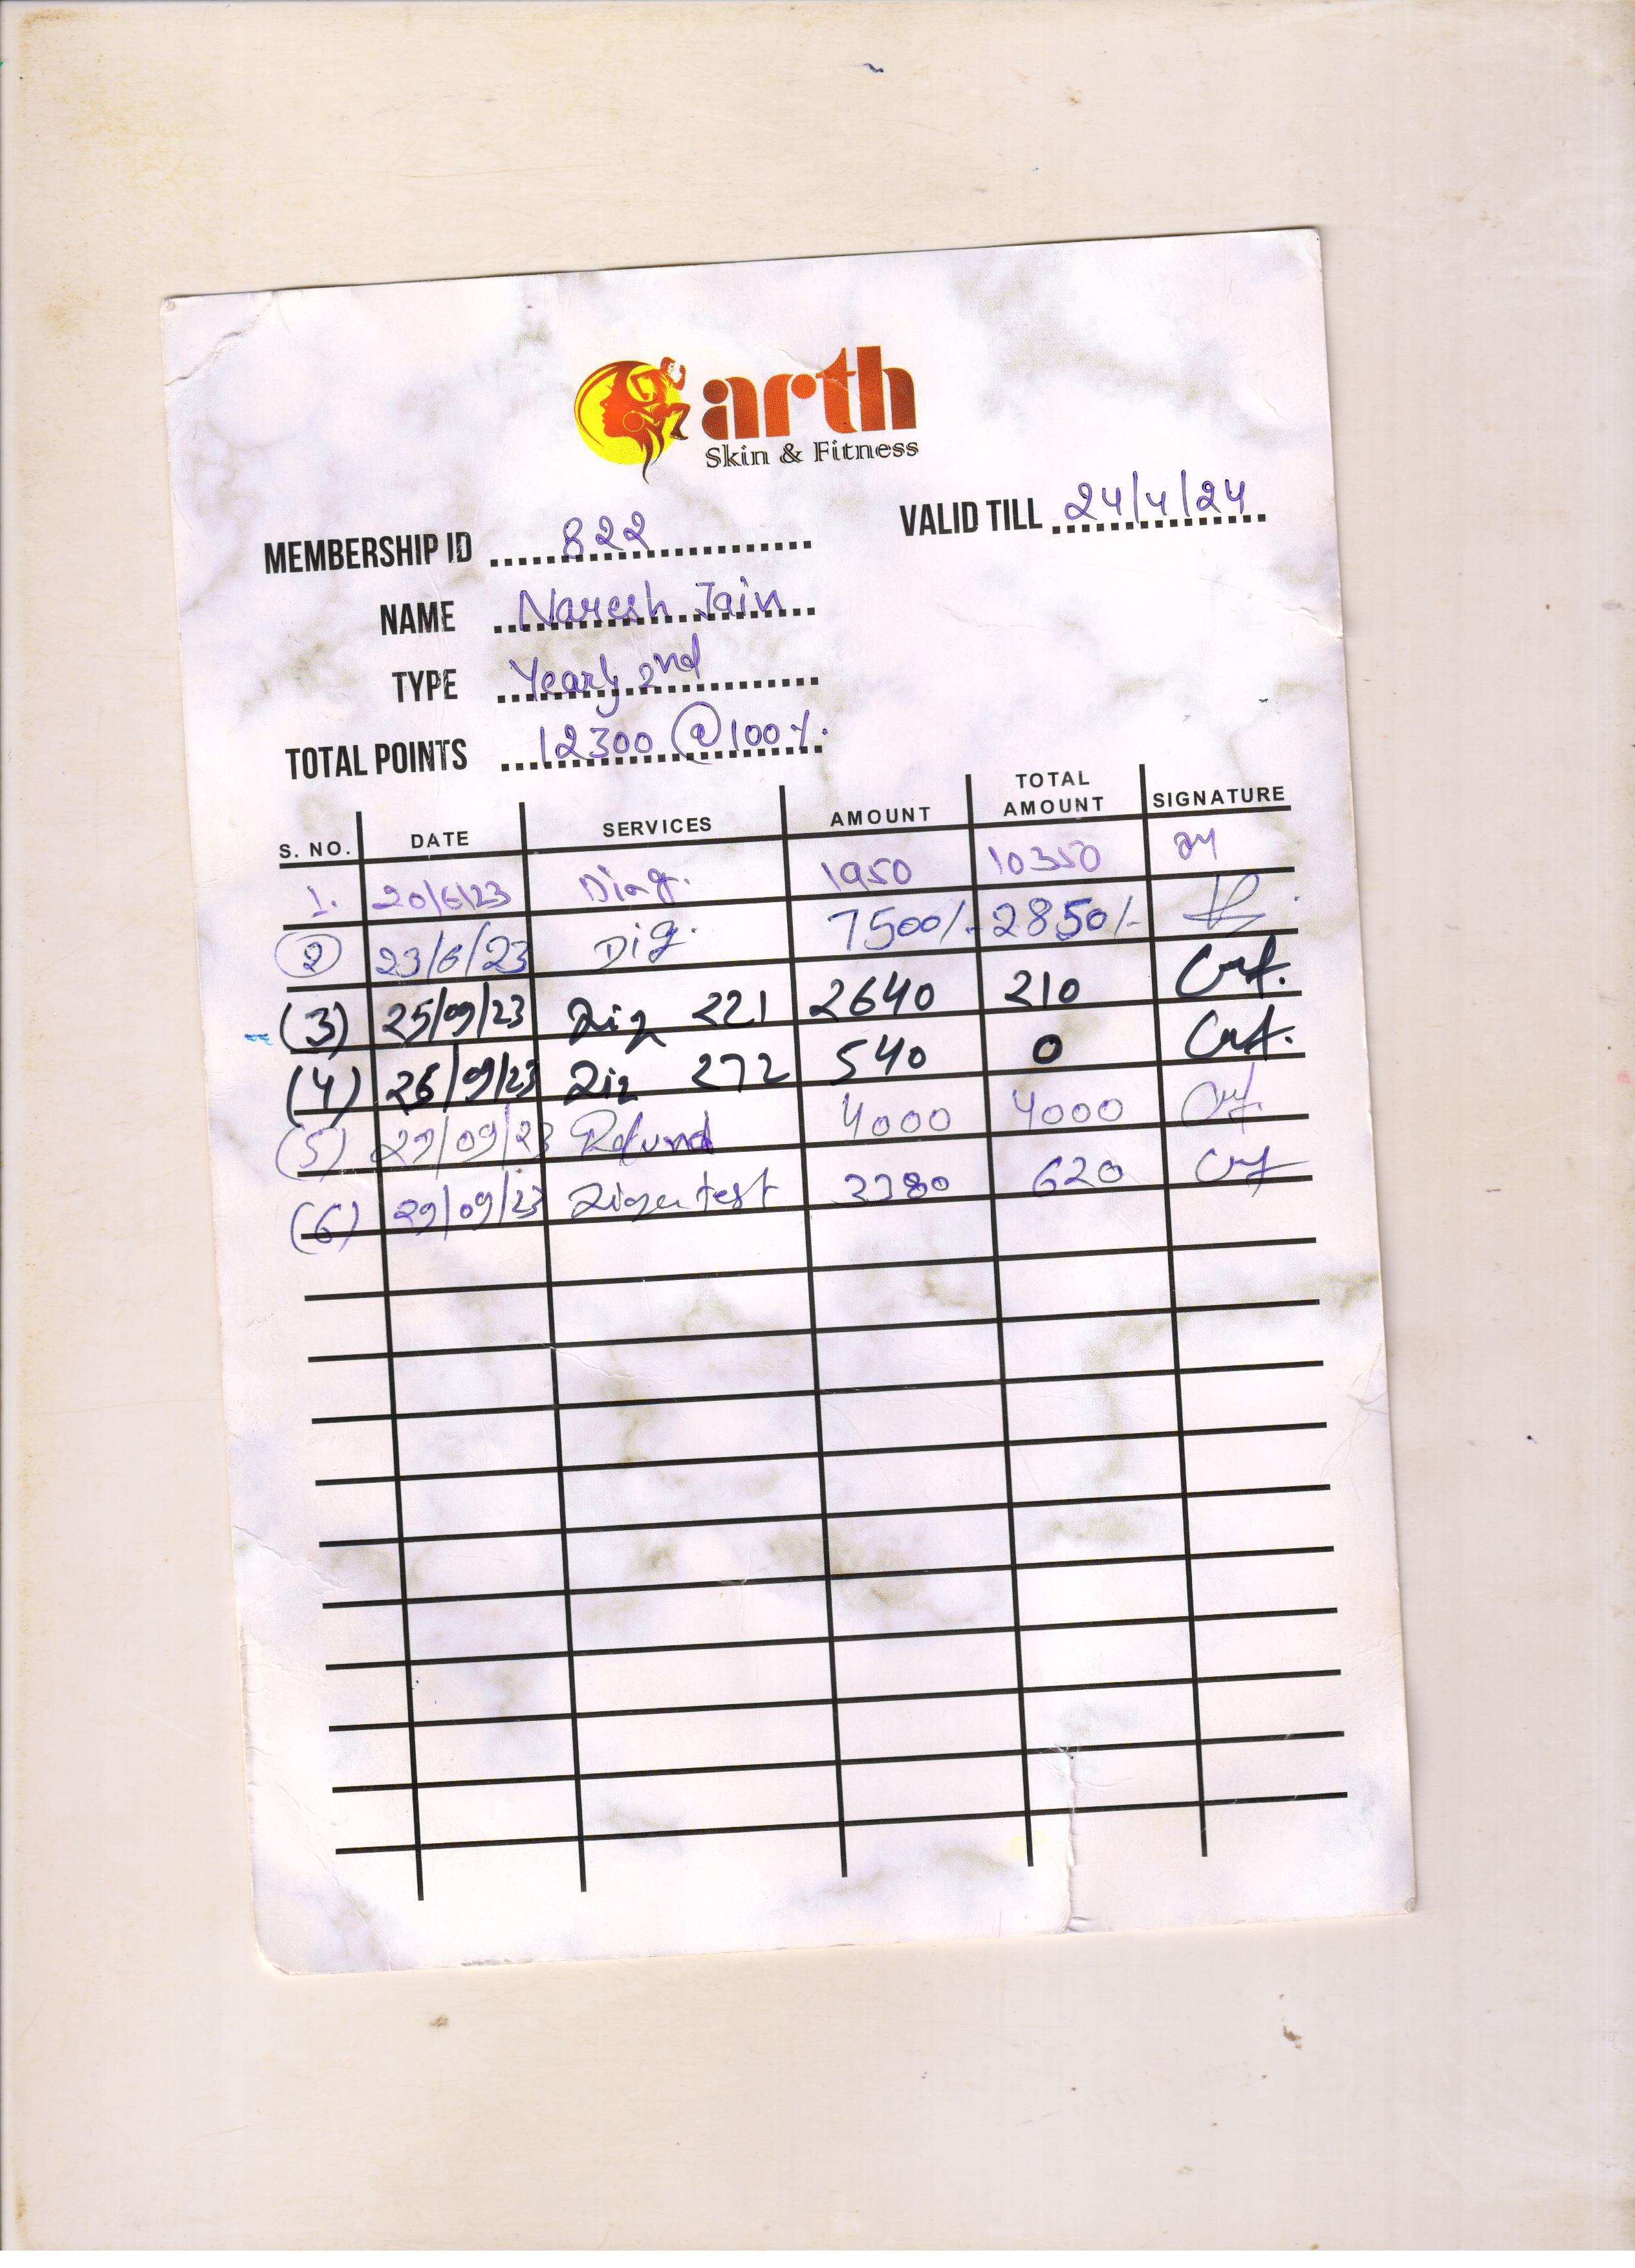 arth
Skin & Fitness
VALID TILL 24/4/24
MEMBERSHIP ID 822
NAME Naresh Jain
TYPE Yearly 2nd
TOTAL POINTS 12300 @ 100%.
S. NO. DATE SERVICES AMOUNT TOTAL AMOUNT SIGNATURE
1. 20/6/23 Diag. 1950 10350
2 23/6/23 Dig. 7500/- 2850/-
(3) 25/09/23 221 2640 210
(4) 26/09/23 272 540 0
(5) 29/09/23 Refund 4000 4000
(6) 29/09/23 test 3380 620